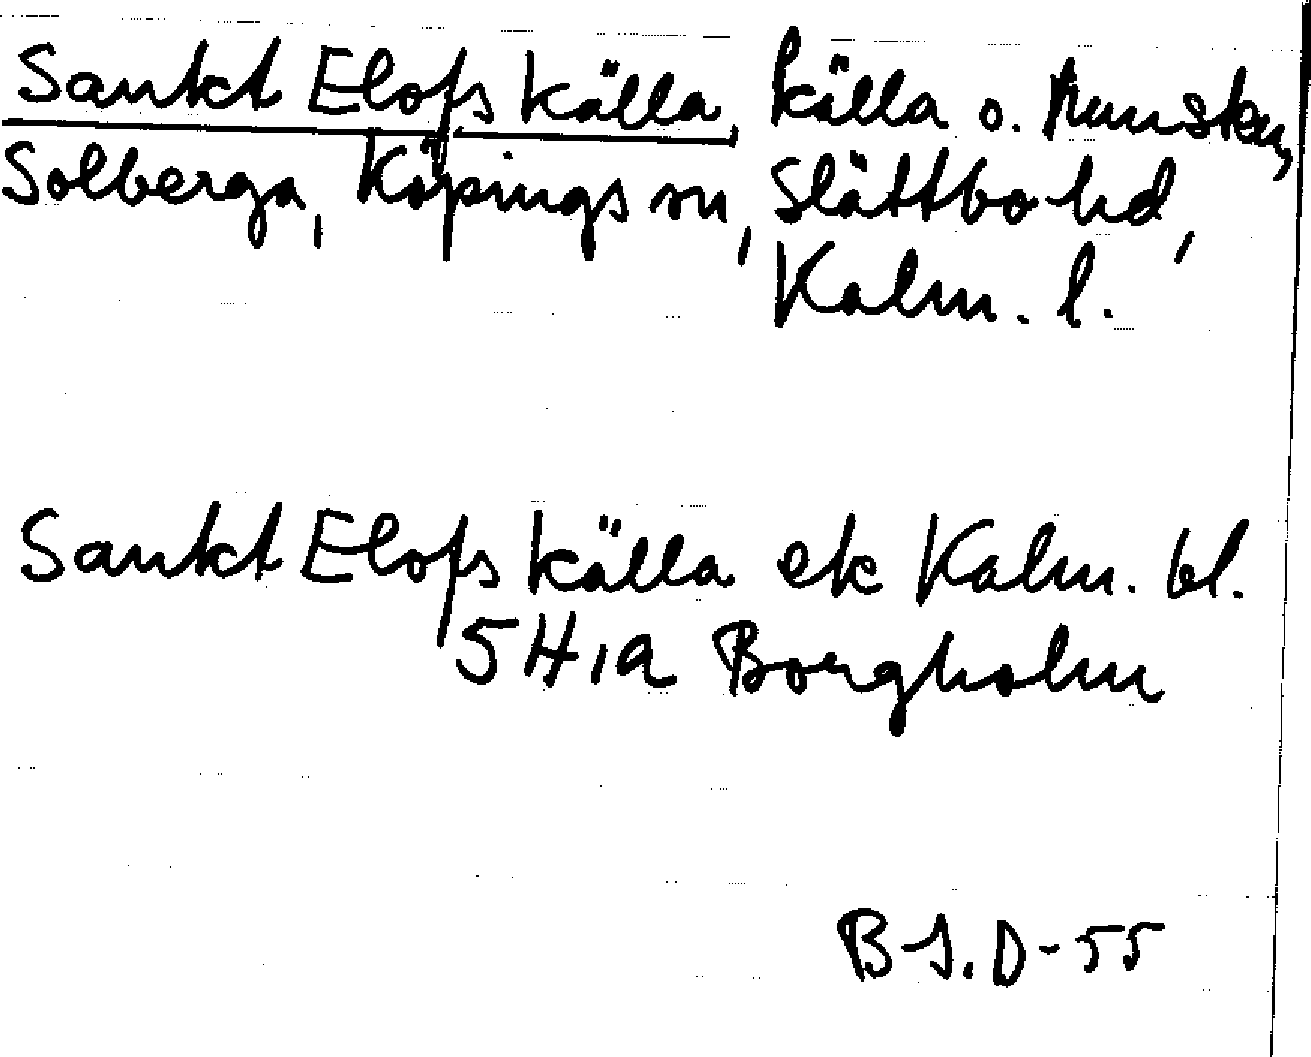 Sankt Elofs källa, källa o. runsten,
Solberga, Köpings sn, Slättbo hd,
Kalm. l.
Sankt Elofs källa ek Kalm. bl.
5H1a Borgholm
B-J.D-55